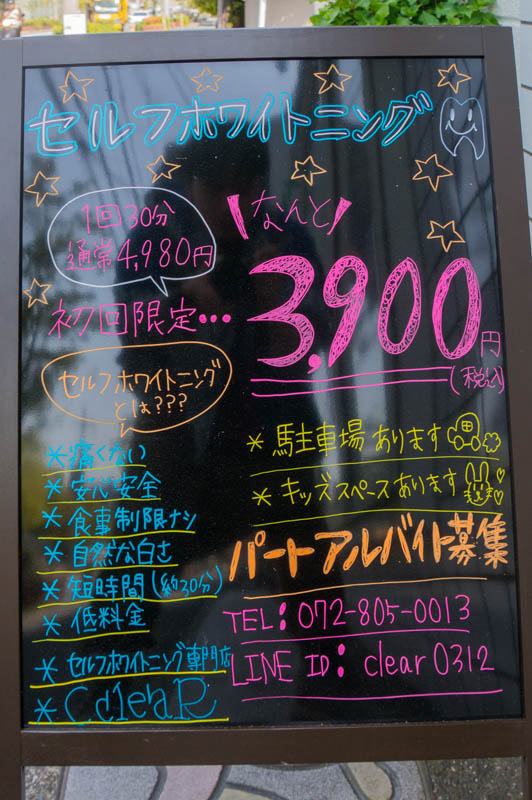 セルフホワイトニング
1回30分
通常4,980円
なんと
初回限定…
3,900円
(税込)
セルフホワイトニング
とは???
*痛くない
*安心安全
*食事制限ナシ
*自然な白さ
*短時間(約30分)
*低料金
*セルフホワイトニング専門店
*CcleaR
*駐車場あります
*キッズスペースあります
パートアルバイト募集
TEL:072-805-0013
LINE ID:clear0312